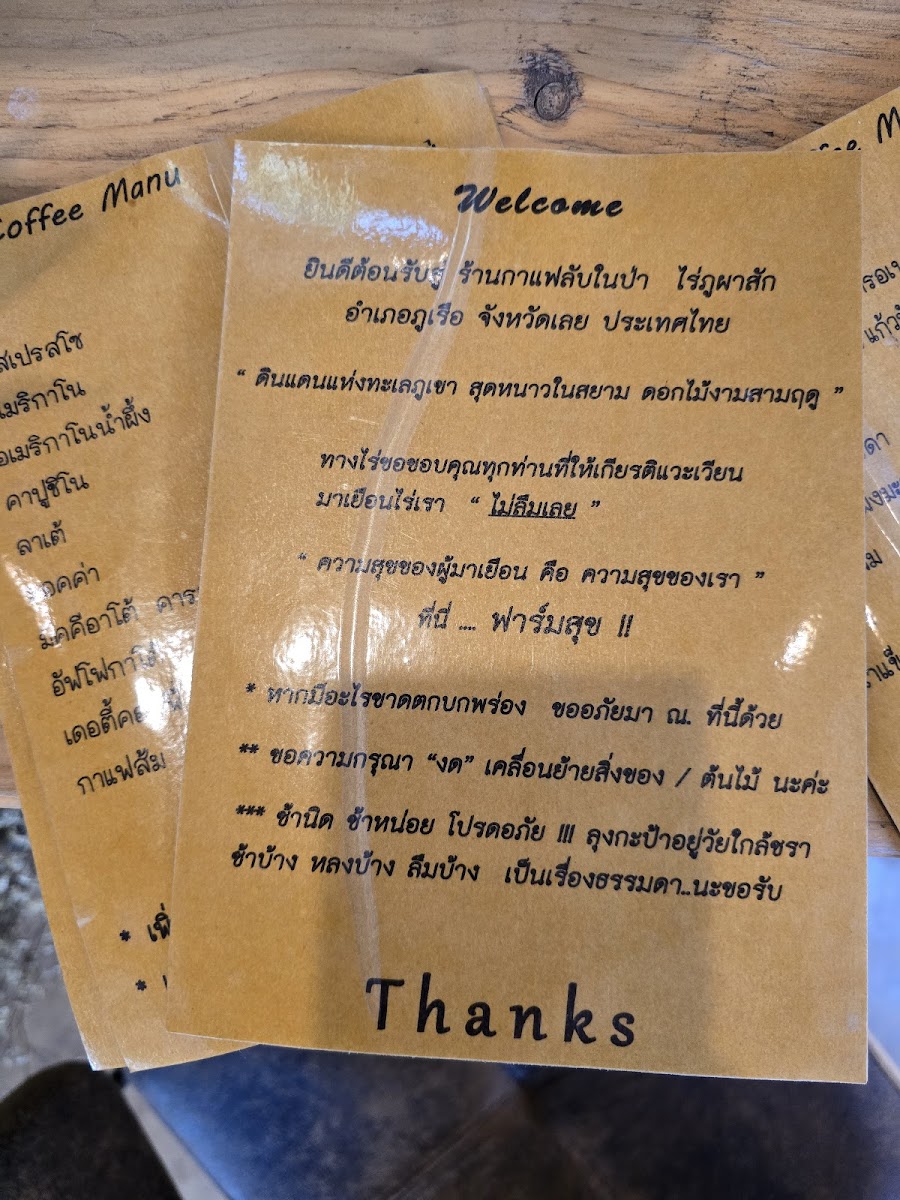 Welcome
ยินดีต้อนรับสู่ ร้านกาแฟลับในป่า ไร่ภูผาสัก
อำเภอภูเรือ จังหวัดเลย ประเทศไทย
“ ดินแดนแห่งทะเลภูเขา สุดหนาวในสยาม ดอกไม้งามสามฤดู ”
ทางไร่ขอขอบคุณทุกท่านที่ให้เกียรติแวะเวียน
มาเยือนไร่เรา “ ไม่ลืมเลย ”
“ ความสุขของผู้มาเยือน คือ ความสุขของเรา ”
ที่นี่ .... ฟาร์มสุข !!
* หากมีอะไรขาดตกบกพร่อง ขออภัยมา ณ. ที่นี้ด้วย
** ขอความกรุณา “งด” เคลื่อนย้ายสิ่งของ / ต้นไม้ นะค่ะ
*** ช้านิด ช้าหน่อย โปรดอภัย !!! ลุงกะป้าอยู่วัยใกล้ชรา
ช้าบ้าง หลงบ้าง ลืมบ้าง เป็นเรื่องธรรมดา..นะขอรับ
Thanks
Coffee Manu
สเปรสโซ
เมริกาโน
อเมริกาโนน้ำผึ้ง
คาปูชิโน
ลาเต้
อคค่า
มัคคีอาโต้ คารา
อัฟโฟกาโต้
เดอตี้คอ
กาแฟส้ม
* เพิ่